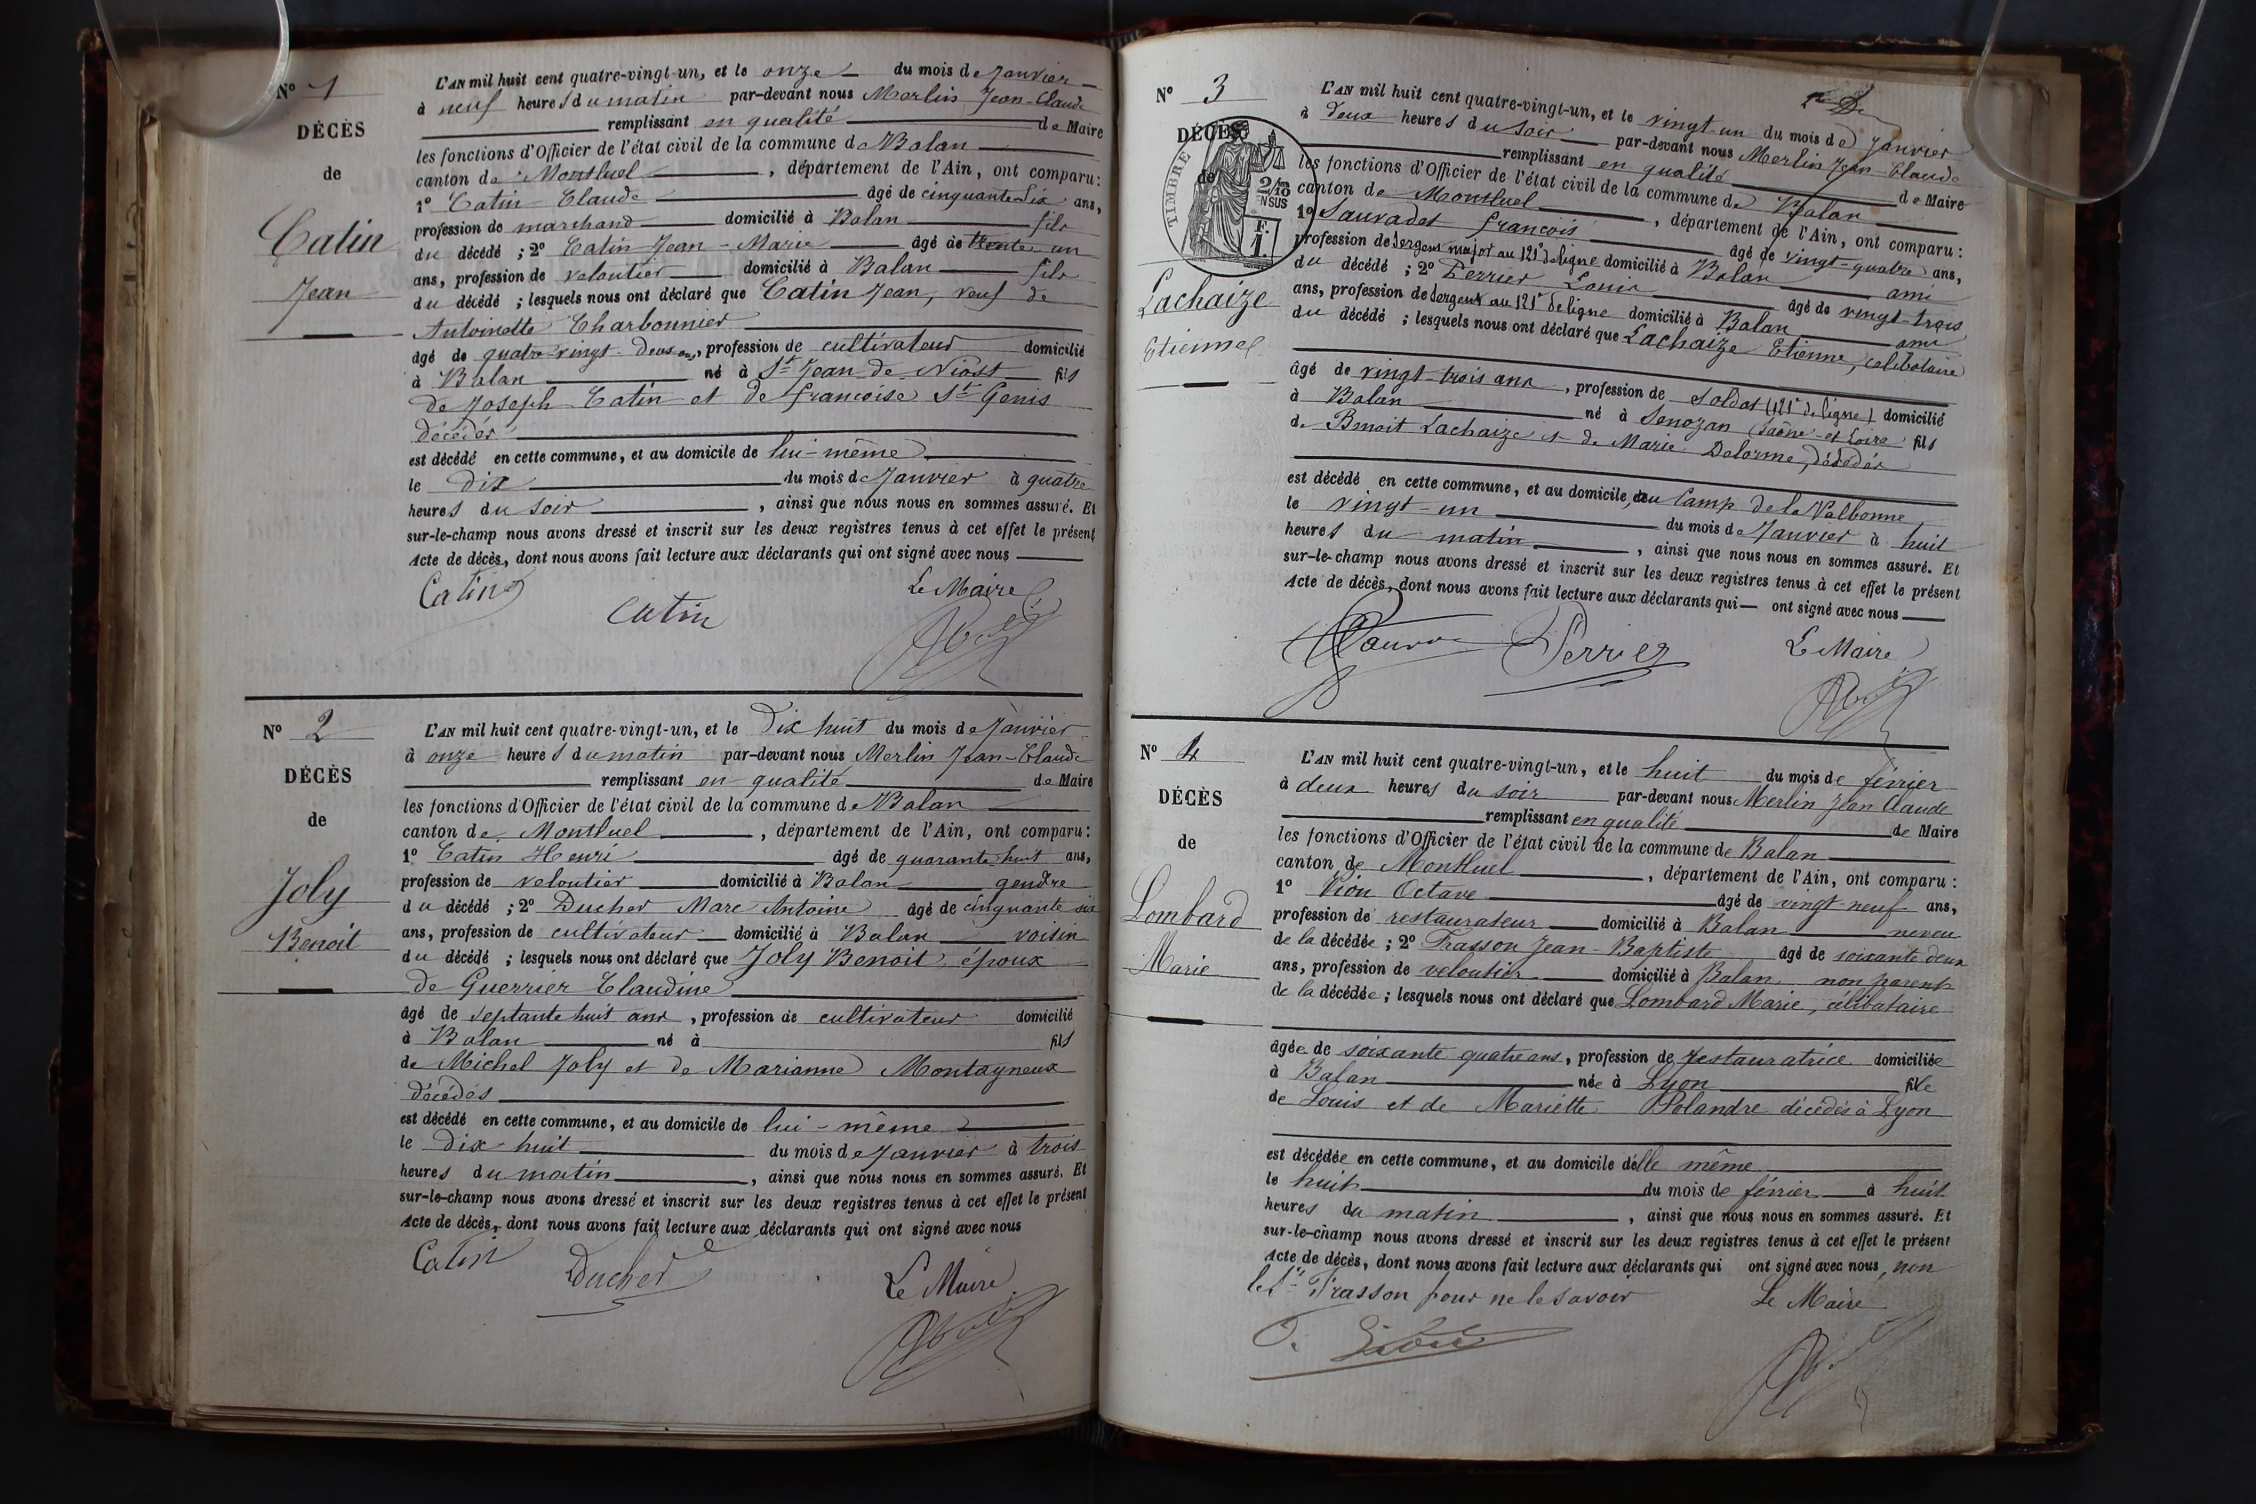 N° 1
DÉCÈS
de
Catin
Jean
L'AN mil huit cent quatre-vingt-un, et le onze du mois de Janvier
à neuf heures du matin par-devant nous Merlin Jean-Claude
remplissant en qualité de Maire
les fonctions d'Officier de l'état civil de la commune de Balan
canton de Montluel, département de l'Ain, ont comparu:
1° Catin Claude âgé de cinquante six ans,
profession de marchand domicilié à Balan fils
du décédé ; 2° Catin Jean-Marie âgé de trente un
ans, profession de veloutier domicilié à Balan fils
du décédé ; lesquels nous ont déclaré que Catin Jean, veuf de
Antoinette Charbonnier
âgé de quatre-vingt-deux ans, profession de cultivateur domicilié
à Balan né à St Jean de Niost fils
de Joseph Catin et de françoise St Genis
décédés
est décédé en cette commune, et au domicile de lui-même
le dix du mois de Janvier à quatre
heures du soir, ainsi que nous nous en sommes assuré. Et
sur-le-champ nous avons dressé et inscrit sur les deux registres tenus à cet effet le présent
Acte de décès, dont nous avons fait lecture aux déclarants qui ont signé avec nous
Catin
Catin
Le Maire
N° 2
DÉCÈS
de
Joly
Benoit
L'AN mil huit cent quatre-vingt-un, et le Dix huit du mois de Janvier
à onze heures du matin par-devant nous Merlin Jean-Claude
remplissant en qualité de Maire
les fonctions d'Officier de l'état civil de la commune de Balan
canton de Montluel, département de l'Ain, ont comparu:
1° Catin Henri âgé de quarante huit ans,
profession de veloutier domicilié à Balan gendre
du décédé ; 2° Ducher Marc Antoine âgé de cinquante six
ans, profession de cultivateur domicilié à Balan voisin
du décédé ; lesquels nous ont déclaré que Joly Benoit époux
de Guerrier Claudine
âgé de septante huit ans, profession de cultivateur domicilié
à Balan né à fils
de Michel Joly et de Marianne Montagneux
décédés
est décédé en cette commune, et au domicile de lui-même
le dix huit du mois de Janvier à trois
heures du matin, ainsi que nous nous en sommes assuré. Et
sur-le-champ nous avons dressé et inscrit sur les deux registres tenus à cet effet le présent
Acte de décès, dont nous avons fait lecture aux déclarants qui ont signé avec nous
Catin
Ducher
Le Maire
N° 3
DÉCÈS
de
TIMBRE
2/10 EN SUS
F. 1.
Lachaize
Etienne
L'AN mil huit cent quatre-vingt-un, et le vingt-un du mois de Janvier
à deux heures du soir par-devant nous Merlin Jean-Claude
remplissant en qualité de Maire
les fonctions d'Officier de l'état civil de la commune de Balan
canton de Montluel, département de l'Ain, ont comparu :
1° Sauvadet françois âgé de vingt-quatre ans,
profession de Sergent major au 121e de ligne domicilié à Balan ami
du décédé ; 2° Perrier Louis âgé de vingt trois
ans, profession de Sergent au 121e de ligne domicilié à Balan ami
du décédé ; lesquels nous ont déclaré que Lachaize Etienne, celibataire
âgé de vingt-trois ans, profession de Soldat (121e de ligne) domicilié
à Balan né à Senozan (Saône-et-Loire) fils
de Benoit Lachaize et de Marie Delorme, décédés
est décédé en cette commune, et au domicile, au Camp de la Valbonne
le vingt-un du mois de Janvier à huit
heures du matin, ainsi que nous nous en sommes assuré. Et
sur-le-champ nous avons dressé et inscrit sur les deux registres tenus à cet effet le présent
Acte de décès, dont nous avons fait lecture aux déclarants qui ont signé avec nous
Perrier
Le Maire
N° 4
DÉCÈS
de
Lombard
Marie
L'AN mil huit cent quatre-vingt-un, et le huit du mois de février
à deux heures du soir par-devant nous Merlin Jean Claude
remplissant en qualité de Maire
les fonctions d'Officier de l'état civil de la commune de Balan
canton de Montluel, département de l'Ain, ont comparu :
1° Octave âgé de vingt-neuf ans,
profession de restaurateur domicilié à Balan neveu
de la décédée ; 2° Frasson Jean-Baptiste âgé de soixante deux
ans, profession de veloutier domicilié à Balan, non parent
de la décédée ; lesquels nous ont déclaré que Lombard Marie, célibataire
âgée de soixante quatre ans, profession de restauratrice domiciliée
à Balan née à Lyon fille
de Louis et de Mariette Polandre décédés à Lyon
est décédée en cette commune, et au domicile d'elle même
le huit du mois de février à huit
heures du matin, ainsi que nous nous en sommes assuré. Et
sur-le-champ nous avons dressé et inscrit sur les deux registres tenus à cet effet le présent
Acte de décès, dont nous avons fait lecture aux déclarants qui ont signé avec nous, non
le Sr Frasson pour ne le savoir
Le Maire